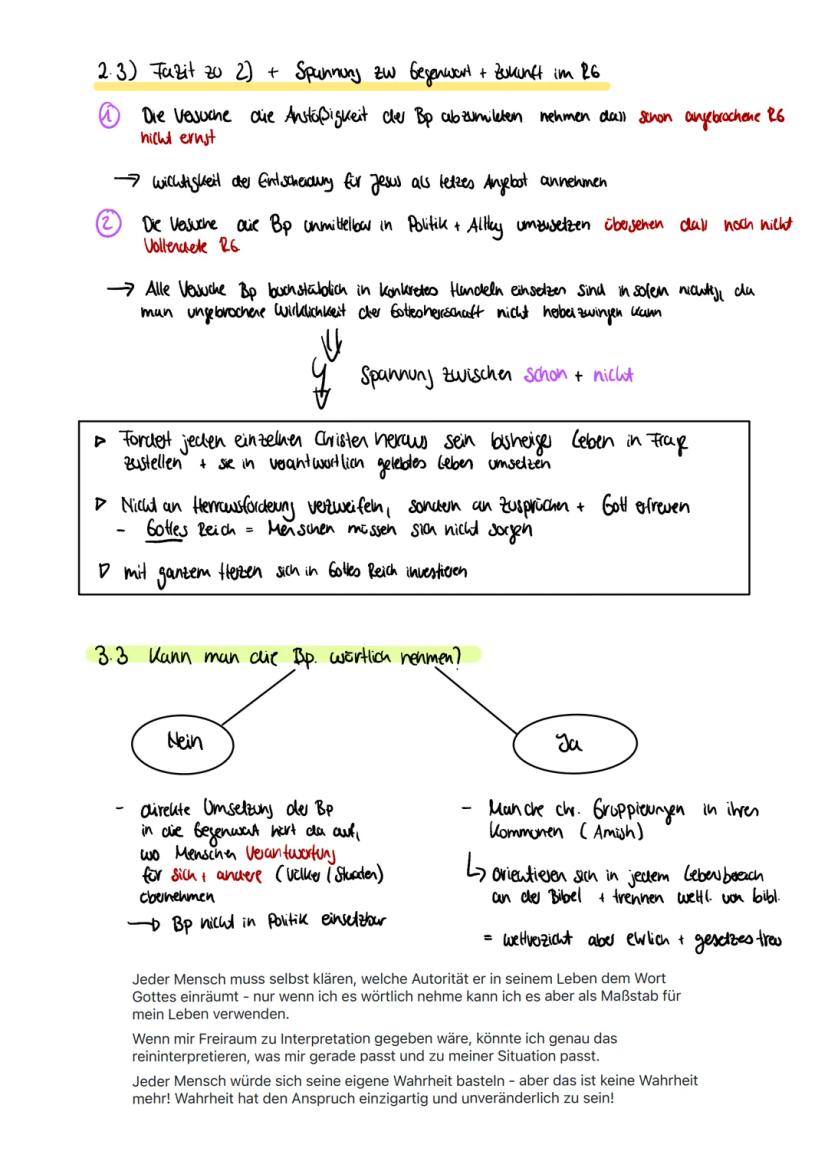 2.3) Fazit zu 2) + Spannung zw Gegenwart + Zukunft im RG
1 Die Versuche die Anstößigkeit der Bp abzumildern nehmen dass schon angebrochene RG
nicht ernst
→ wichtigkeit der Entscheidung für Jesus als letzes Angebot annehmen
2 Die Versuche die Bp unmittelbar in Politik + Alltag umzusetzen übersehen dass noch nicht
Vollendete RG
→ Alle Versuche Bp buchstäblich in konkretes Handeln einsetzen sind in sofern nichtig, da
man ungebrochene Wirklichkeit der Gottesherrschaft nicht herbeizwingen kann
Spannung zwischen schon + nicht
▷ Fordert jeden einzelnen Christen heraus sein bisheriges Leben in Frage
zustellen + sie in verantwortlich gelebtes Leben umsetzen
▷ Nicht an Herrausforderung verzweifeln, sondern an Zusprüchen + Gott erfreuen
- Gottes Reich = Menschen müssen sich nicht sorgen
▷ mit ganzem Herzen sich in Gottes Reich investieren
3.3 Kann man die Bp. wörtlich nehmen?
Nein
Ja
- direkte Umsetzung der Bp
in die Gegenwart hört da auf,
wo Menschen Verantwortung
für sich + andere (Völker / Staaten)
übernehmen
→ Bp nicht in Politik einsetzbar
- Manche chr. Gruppierungen in ihren
Kommunen (Amish)
↳ orientieren sich in jedem Lebensbereich
an der Bibel + trennen weltl. von bibl.
= weltverzicht aber ehrlich + gesetzestreu
Jeder Mensch muss selbst klären, welche Autorität er in seinem Leben dem Wort
Gottes einräumt - nur wenn ich es wörtlich nehme kann ich es aber als Maßstab für
mein Leben verwenden.
Wenn mir Freiraum zu Interpretation gegeben wäre, könnte ich genau das
reininterpretieren, was mir gerade passt und zu meiner Situation passt.
Jeder Mensch würde sich seine eigene Wahrheit basteln - aber das ist keine Wahrheit
mehr! Wahrheit hat den Anspruch einzigartig und unveränderlich zu sein!